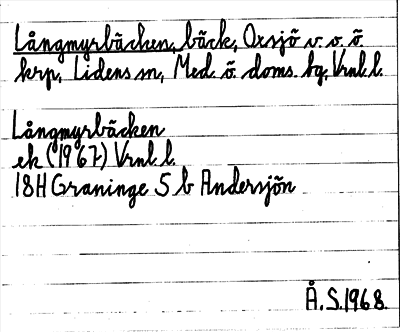 Långmyrbäcken, bäck, Oxsjö v. o. ö.
krp, Lidens sn, Med. ö. doms. hg, Vrnl. l.
Långmyrbäcken
ek (1967) Vrnl. l.
18H Graninge 5 b Andersjön
Å. S. 1968.